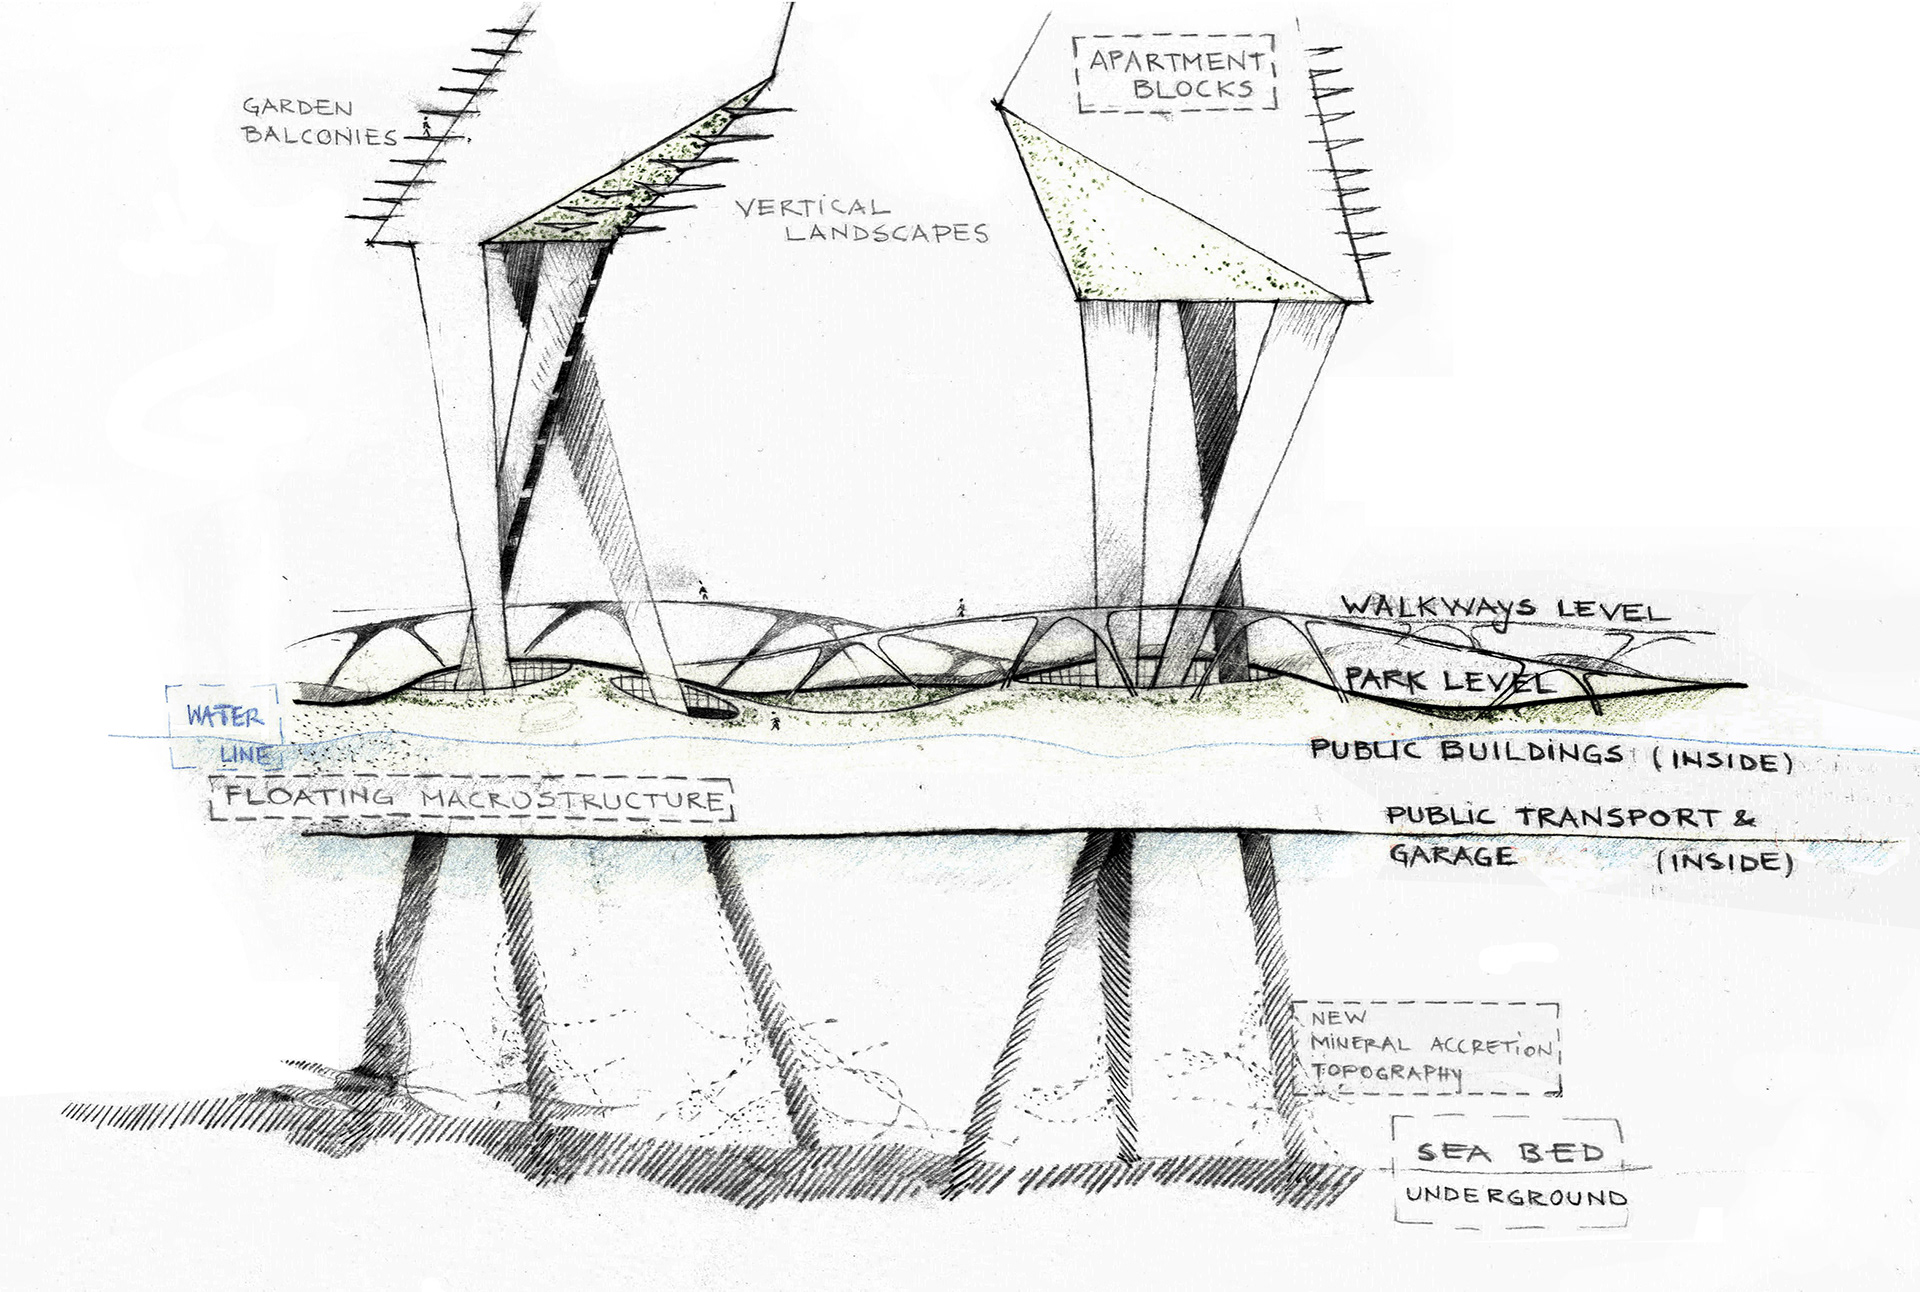 APARTMENT
BLOCKS
GARDEN
BALCONIES
VERTICAL
LANDSCAPES
WALKWAYS LEVEL
PARK LEVEL
WATER
LINE
PUBLIC BUILDINGS (INSIDE)
FLOATING MACROSTRUCTURE
PUBLIC TRANSPORT &
GARAGE (INSIDE)
NEW
MINERAL ACCRETION
TOPOGRAPHY
SEA BED
UNDERGROUND